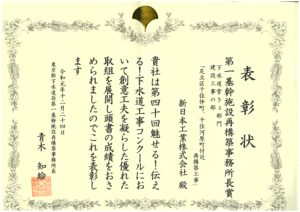 表彰状
第一基幹施設再構築事務所長賞
下水道管きょ部門
建設工事の部
「足立区千住仲町、千住河原町付近
再構築工事」
新日本工業株式会社 殿
貴社は第四十回魅せる!伝え
る!下水道工事コンクールにお
いて創意工夫を凝らした優れた
取組を展開し頭書の成績をおさ
められましたのでこれを表彰し
ます
令和元年十二月二十四日
東京都下水道局第一基幹施設再構築事務所長
青木 知絵